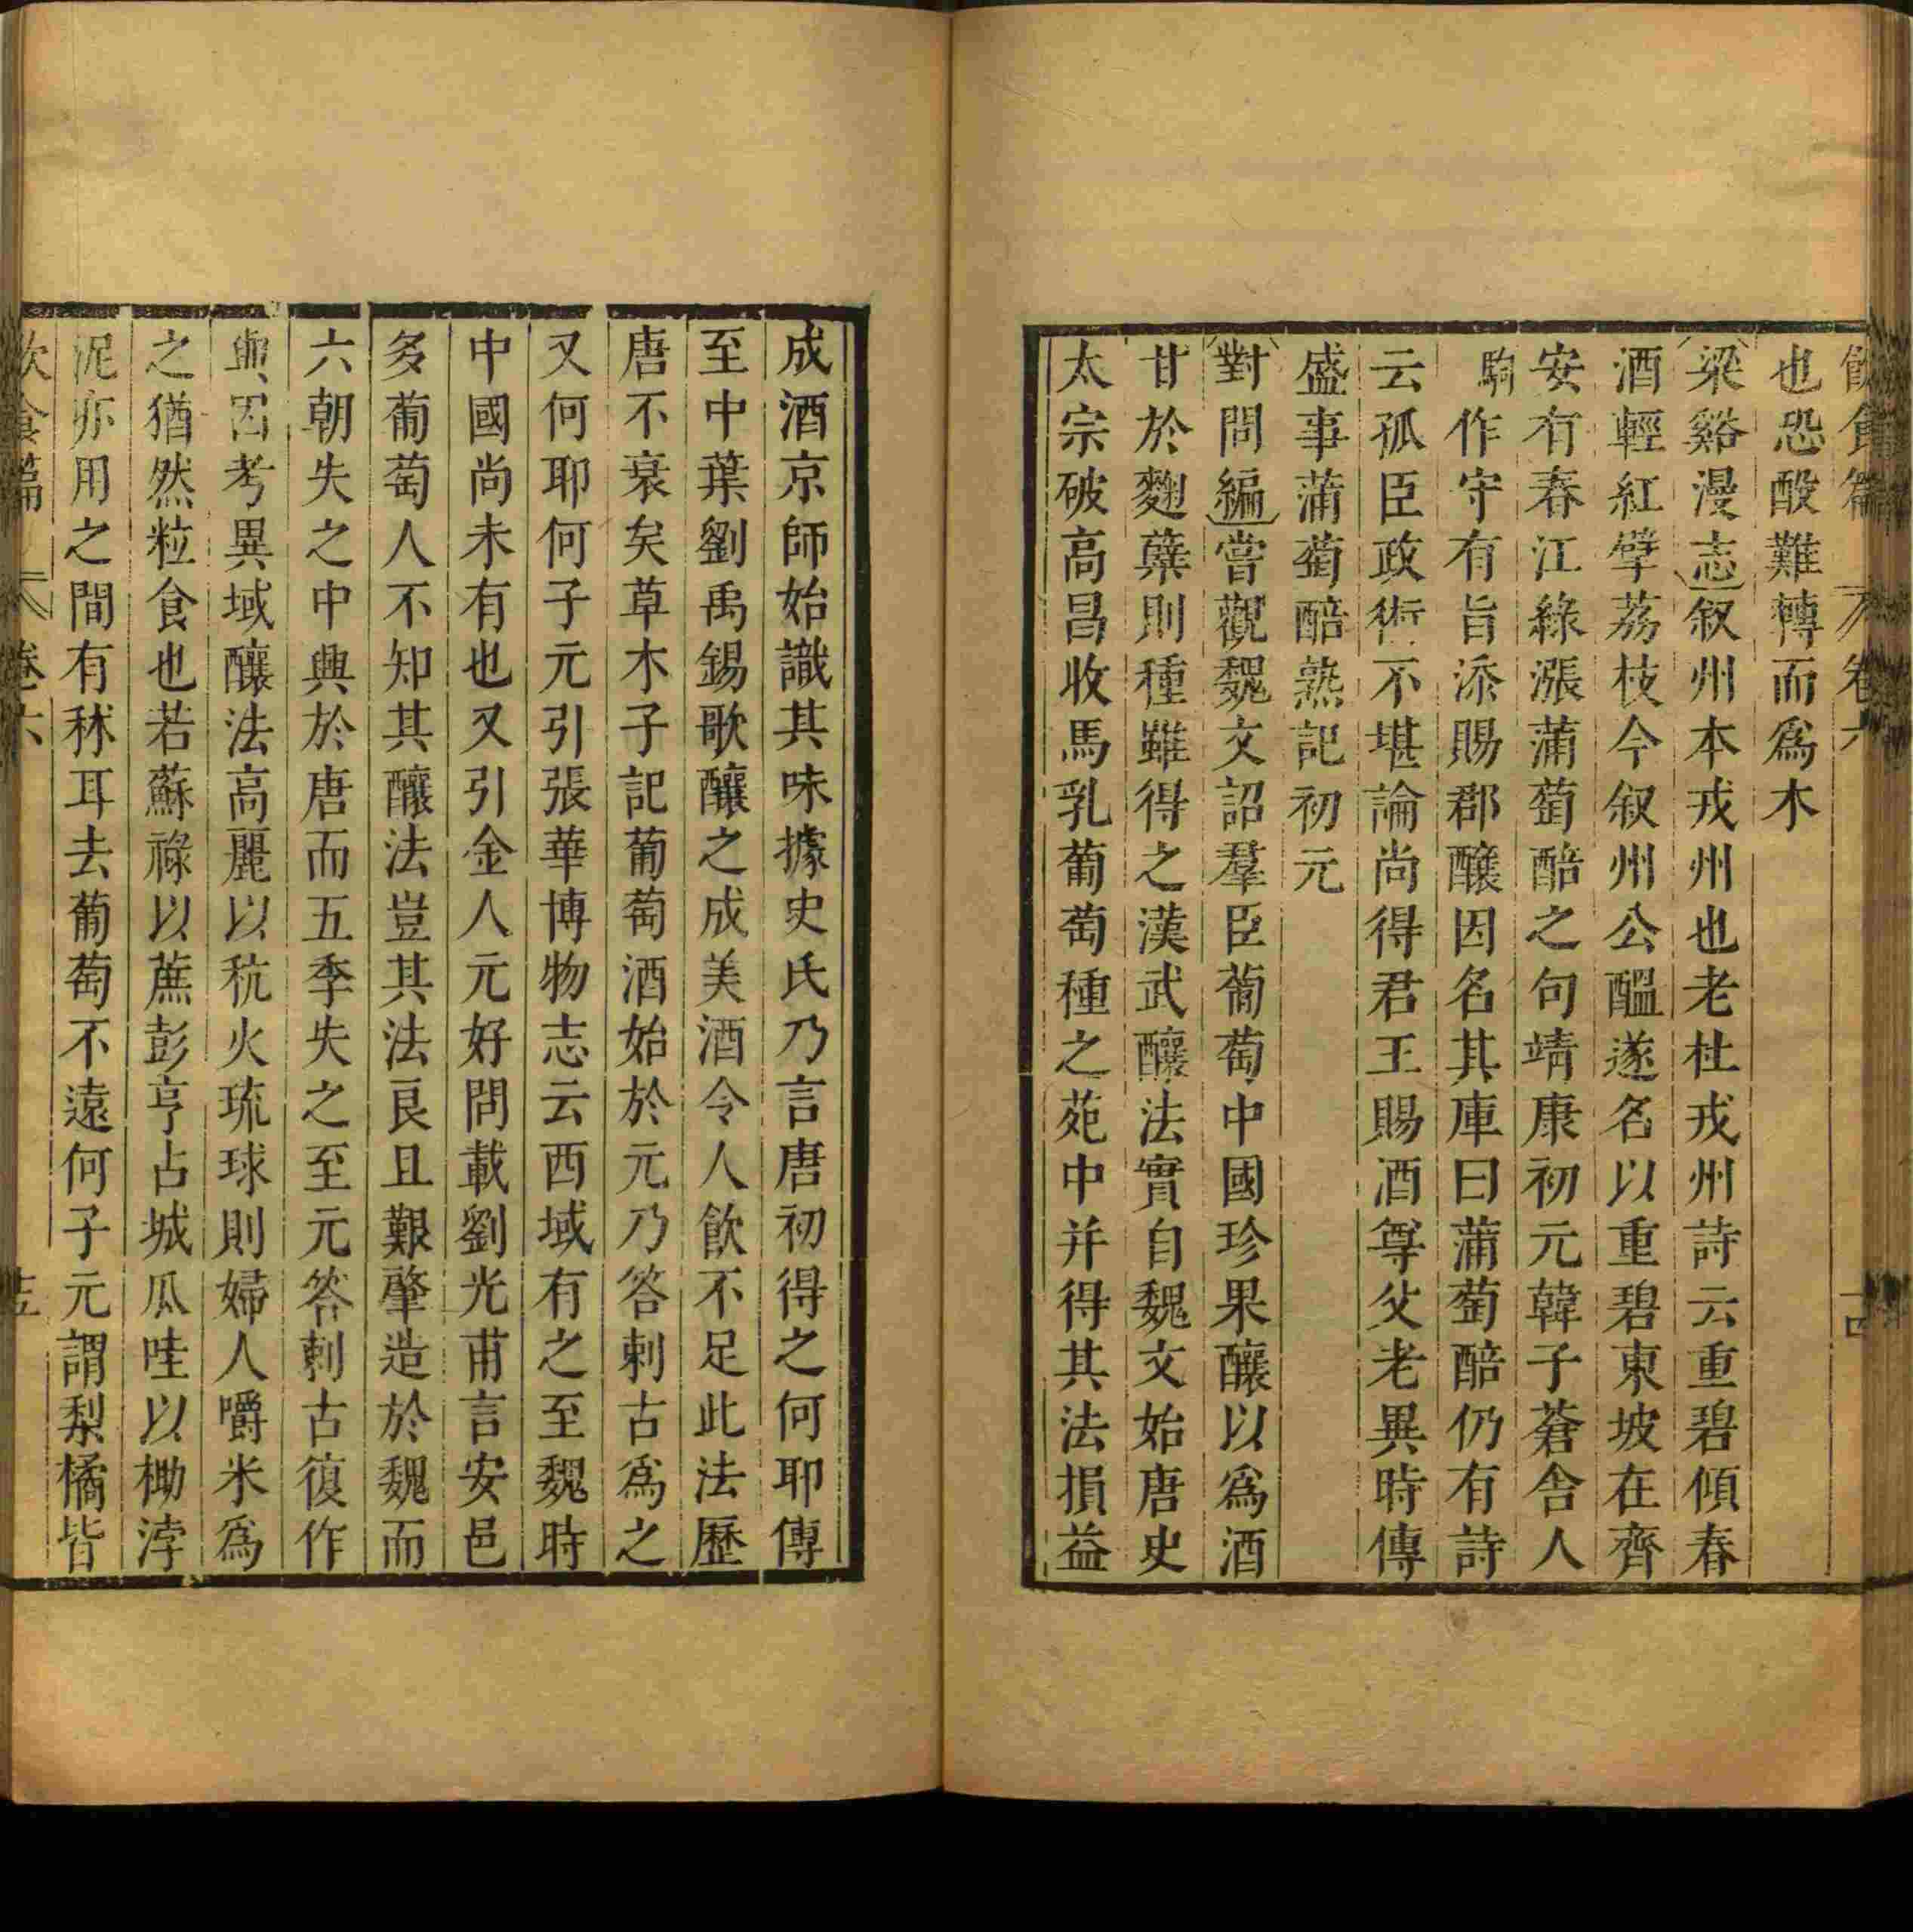 飲食篇 卷六 十四
也恐酘難轉而爲木
梁谿漫志叙州本戎州也老杜戎州詩云重碧傾春
酒輕紅擘荔枝今叙州公醖遂名以重碧東坡在齊
安有春江綠漲蒲萄醅之句靖康初元韓子蒼舍人
駒作守有旨添賜郡釀因名其庫曰蒲萄醅仍有詩
云孤臣政術不堪論尚得君王賜酒尊父老異時傳
盛事蒲萄醅熟記初元
對問編嘗觀魏文詔羣臣葡萄中國珍果釀以爲酒
甘於麴蘗則種雖得之漢武釀法實自魏文始唐史
太宗破高昌收馬乳葡萄種之苑中并得其法損益
成酒京師始識其味據史氏乃言唐初得之何耶傳
至中葉劉禹錫歌釀之成美酒令人飲不足此法歷
唐不衰矣草木子記葡萄酒始於元乃答剌古爲之
又何耶何子元引張華博物志云西域有之至魏時
中國尚未有也又引金人元好問載劉光甫言安邑
多葡萄人不知其釀法豈其法良且艱肇造於魏而
六朝失之中興於唐而五季失之至元答剌古復作
與因考異域釀法高麗以秔火琉球則婦人嚼米爲
之猶然粒食也若蘇祿以蔗彭亨占城瓜哇以椰浡
泥亦用之間有秫耳去葡萄不遠何子元謂梨橘皆
飲食篇 卷六 十五